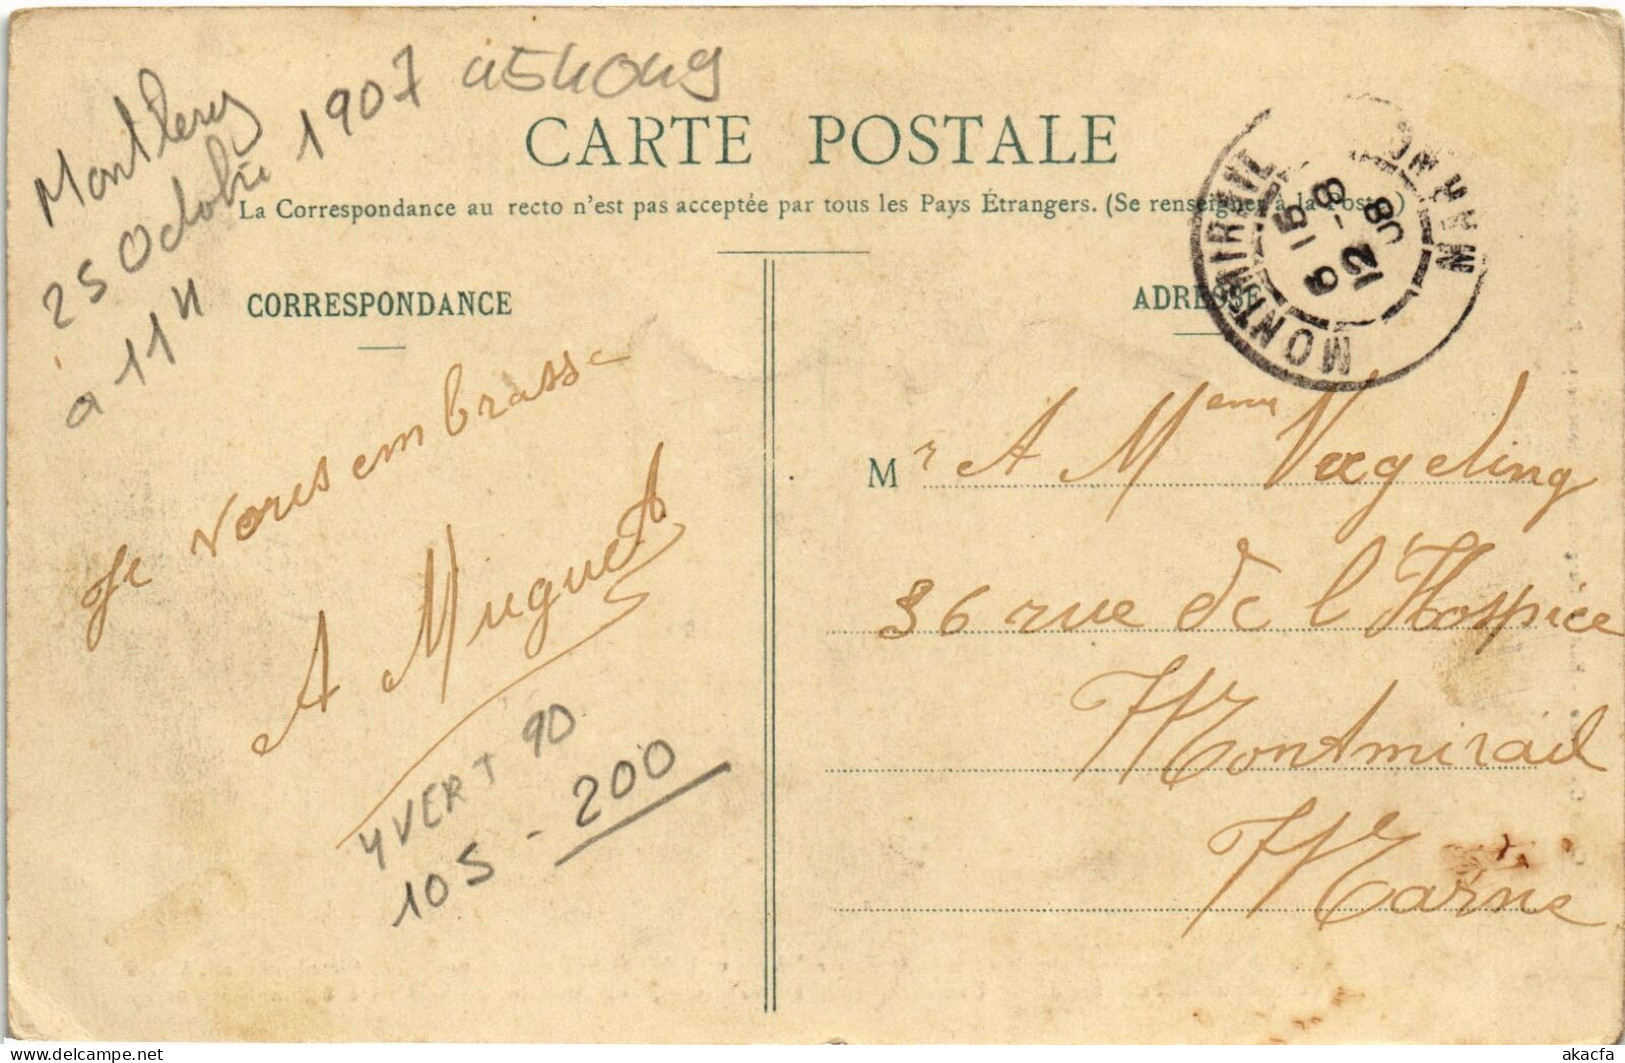 Montlery
25 Octobre 1907
a 11 H
CARTE POSTALE
La Correspondance au recto n'est pas acceptée par tous les Pays Étrangers. (Se renseigner à la Poste.)
MONTMIRAIL
MARNE
8 15
12-8
08
CORRESPONDANCE
ADRESSE
Je vous embrasse
A Muguet
YVERT 90
105 - 200
Mr A Meme Vogeling
36 rue de l'Hospice
Montmirail
Marne
akpool.co.uk
akacfa